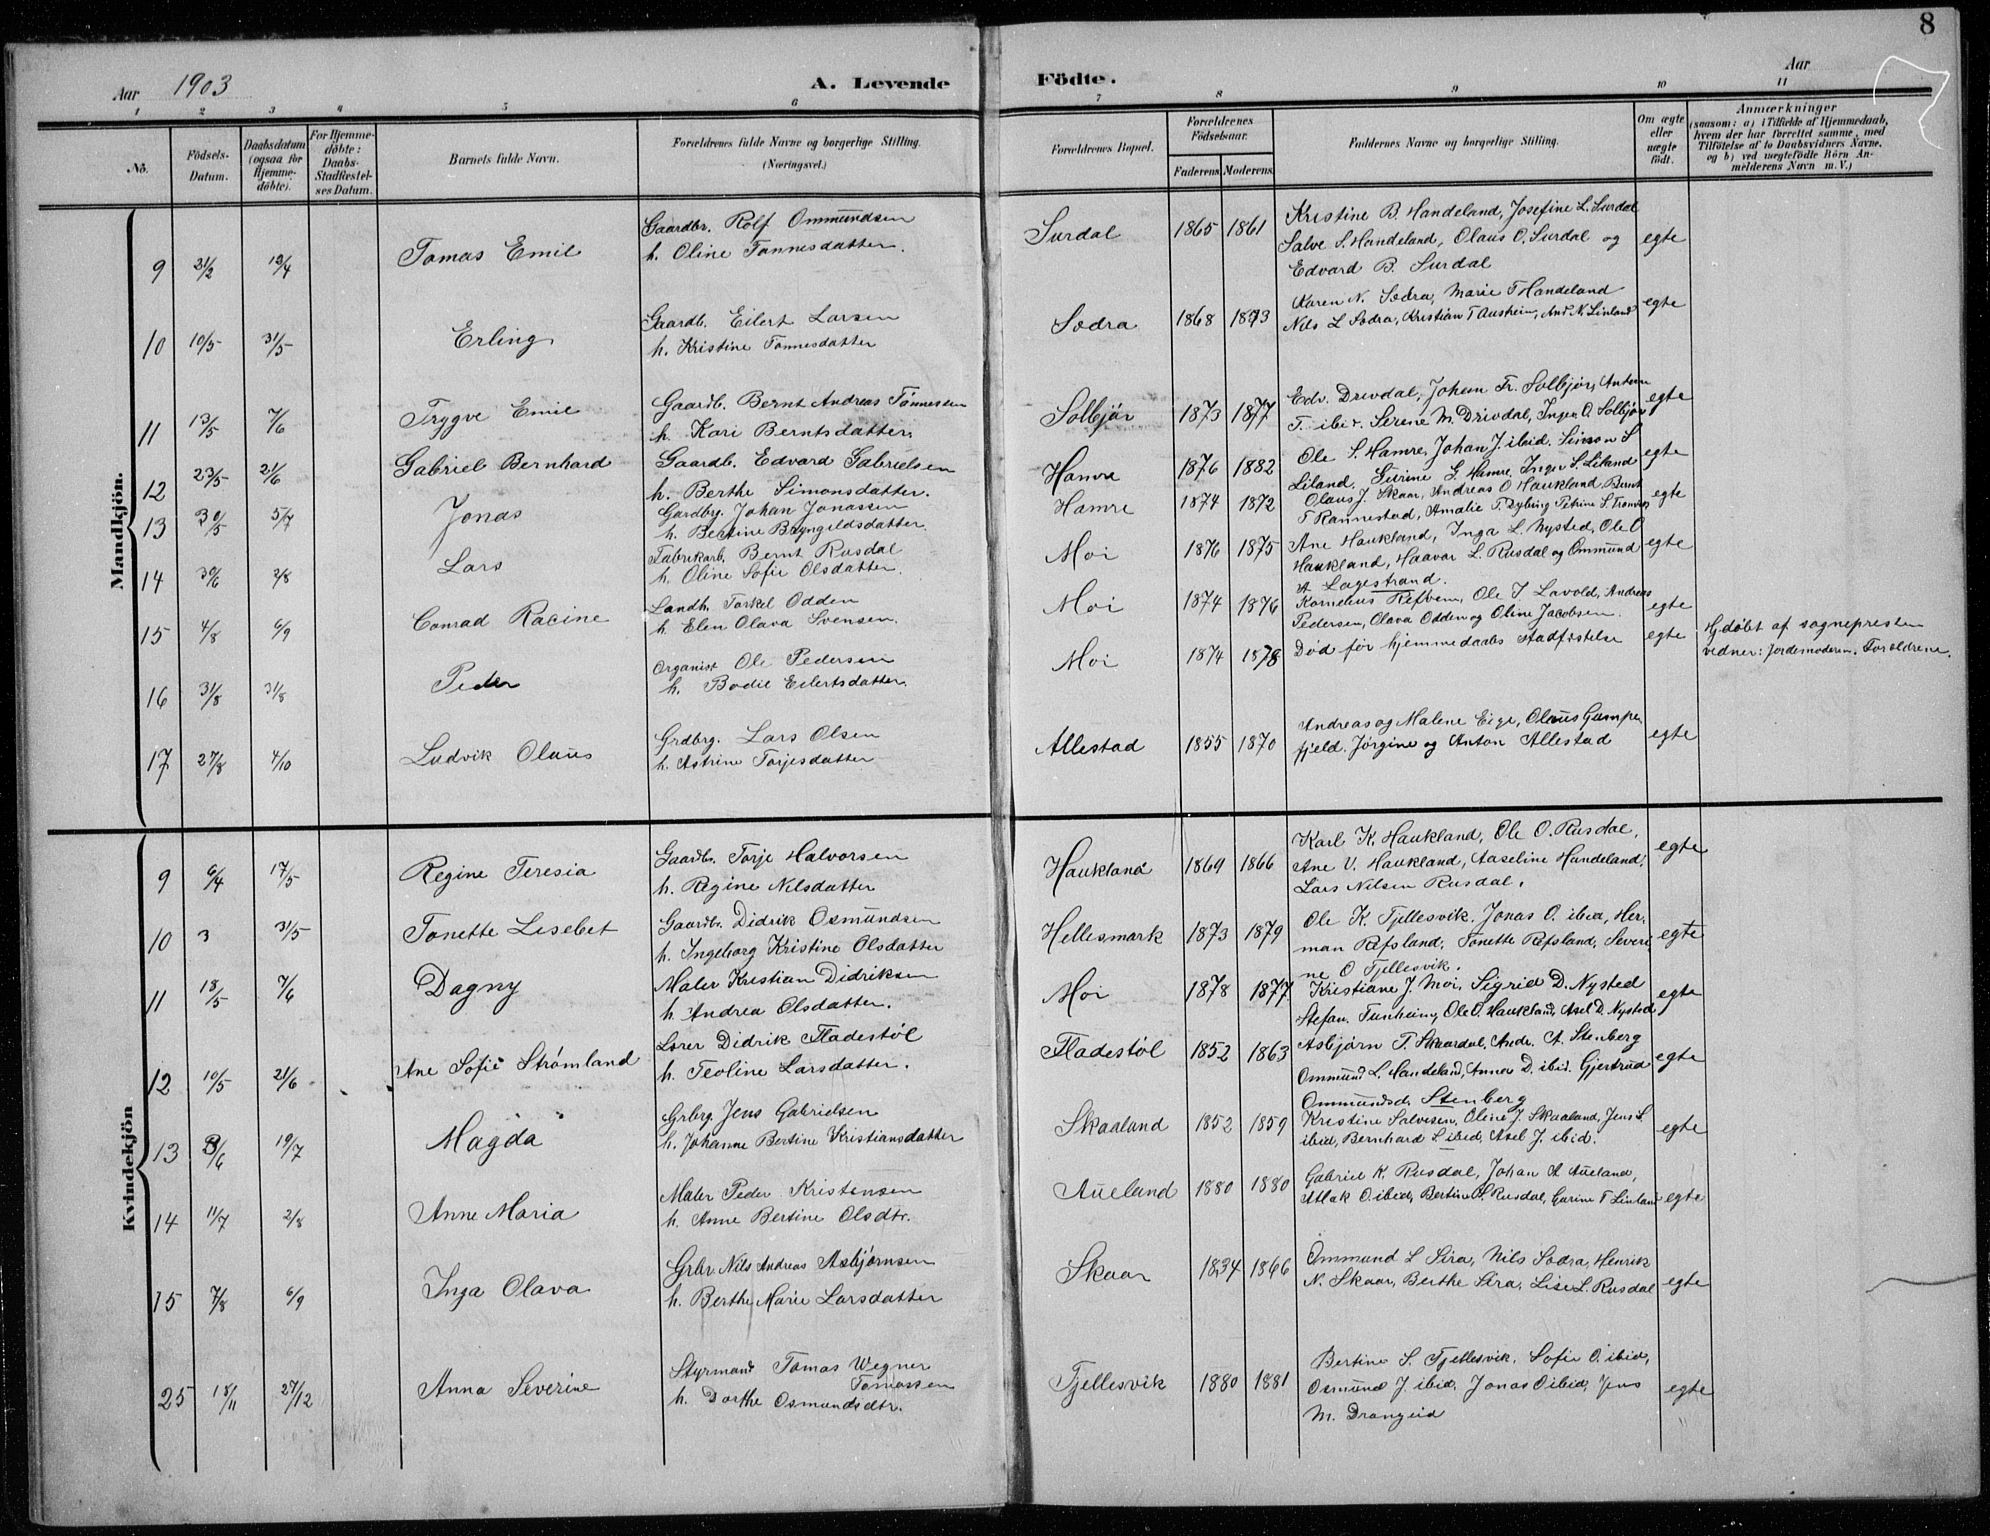 8
Aar 1903
A. Levende Födte.
Aar
1 2 3 4 5 6 7 8 9 10 11
No.
Födsels-Datum.
Daabsdatum (ogsaa for Hjemmedöbte).
For Hjemmedöbte: Daabs-Stadfæstelses Datum.
Barnets fulde Navn.
Forældrenes fulde Navne og borgerlige Stilling. (Næringsvei.)
Forældrenes Bopæl.
Forældrenes Födselsaar.
Faderens. Moderens.
Faddernes Navne og borgerlige Stilling.
Om ægte eller uægte födt.
Anmærkninger
(saasom: a) i Tilfælde af Hjemmedaab, hvem der har forrettet samme, med Tilföielse af to Daabsvidners Navne, og b) ved uægtefödte Börn Anmelderens Navn m. V.)
Mandkjön.
9 21/2 12/4 Tomas Emil
Gaardbr. Rolf Ommundsen
h. Oline Tønnesdatter.
Surdal 1865 1861
Kristine B. Handeland, Josefine L. Surdal
Salve S. Handeland, Olaus O. Surdal og
Edvard B. Surdal
egte
10 10/5 31/5 Erling
Gaardb. Eilert Larsen
h. Kristine Tønnesdatter
Sodra 1868 1873
Karen N. Sodra, Marie T Handeland
Nils L Sodra, Kristian T Ausheim, And N. Linland
egte
11 13/5 7/6 Trygve Emil
Gaardb. Bernt Andreas Tönnesen
h. Kari Berntsdatter.
Solbjör 1873 1877
Edv. Drivdal, Johem Fr. Solbjör, Anton
T. ibid. Serene M. Drivdal, Inger O. Solbjör
egte
12 23/5 21/6 Gabriel Bernhard
Gaardb. Edvard Gabrielsen
h. Berthe Simonsdatter.
Hamre 1876 1882
Ole S. Hamre, Johan J. ibid. Simon S
Liland, Gurine G. Hamre, Inger S. Liland
egte
13 30/5 5/7 Jonas
Gardbg. Johan Jonassen
h. Bertine Bryngeldsdatter
Hamre 1874 1872
Olaus J. Skaar, Andreas O Haukland Bernt
T Rannestad, Amalie T. Dybing Petrine S. Tronvig
egte
14 30/6 2/8 Lars
Fabrikarb. Bernt Rusdal
h. Oline Sofie Olsdatter.
Moi 1876 1875
Ane Haukland, Inga L. Nysted, Ole O
Haukland, Haavar L. Rusdal og Ommund
A Lagestrand.
egte
15 4/8 6/9 Conrad Racine
Landh. Torkel Odden
h. Elen Olava Svensen.
Moi 1874 1876
Kornelius Refvem, Ole I Lavold, Andreas
Pedersen, Olava Odden og Oline Jacobsen.
egte
16 31/8 31/8 Peder
Organist Ole Pedersen
h. Bodil Eilertsdatter.
Moi 1874 1878
Död før hjemmedaabs stadfæstelse
egte
Hjdöbt af sognepresten
vidner: Jordemoderen. Foroldrene.
17 27/8 4/10 Ludvik Olaus
Grdbrg. Lars Olsen
h. Astrine Torjesdatter
Allestad 1855 1870
Andreas og Malene Eige, Olaus Gumpe
fjeld. Jörgine og Anton Allestad
egte
Kvindekjön
9 6/4 17/5 Regine Teresia
Gaardb. Torje Halvorsen
h. Regine Nilsdatter
Haukland 1869 1866
Karl K. Haukland, Ole O. Rusdal,
Ane V. Haukland, Aaseline Handeland,
Lars Nilsen Rusdal.
egte
10 3 31/5 Tonette Lisebet
Gaardb. Didrik Osmundsen
h. Ingeborg Kristine Olsdatter
Hellesmark 1873 1879
Ole K. Fjellesvik, Jonas O. ibid, Her-
man Refsland, Tonette Refsland, Severi
ne O Fjellesvik.
egte
11 18/5 7/6 Dagny
Maler Kristian Didriksen
h. Andrea Olsdatter.
Moi 1878 1877
Kristiane J. Moi, Sigrid D. Nysted
Stefan. Tunheim, Ole O. Haukland, Axel D. Nysted
egte
12 10/5 21/6 Ane Sofie Strømland
Lærer Didrik Fladestøl
h. Teoline Larsdatter.
Fladestöl 1852 1863
Asbjørn T. Skaardal, Andr. A. Stenberg
Ommund L. Handeland, Anna D. ibid. Gjertrud
Ommundsd. Stenberg
egte
13 3/6 19/7 Magda
Grbrg. Jens Gabrielsen
h. Johanne Bertine Kristiansdatter
Skaaland 1852 1859
Kristine Salvesen, Oline J. Skaaland, Jens S.
ibid, Bernhard S ibid, Axel J. ibid.
egte
14 11/7 2/8 Anne Maria
Maler Peder Kristensen
h. Anne Bertine Olsdtr.
Aueland 1880 1880
Gabriel K. Rusdal, Johan A Aueland,
Atlak O ibid, Bertine Rusdal, Gurine T Linland
egte
15 7/8 6/9 Inga Olava
Grbr Nils Andreas Asbjörnsen
h. Berthe Marie Larsdatter
Skaar 1834 1866
Ommund L Sira, Nils Sodra, Henrik
N. Skaar, Berthe Sira, Lise L. Rusdal
egte
25 18/11 27/12 Anna Severine
Styrmand Tomas Wegner
Tomassen
h. Dorthe Osmundsdtr.
Fjellesvik 1880 1881
Bertine S. Fjellesvik, Sofie O. ibid,
Osmund J ibid, Jonas O ibid, Jens
M. Drangeid
egte